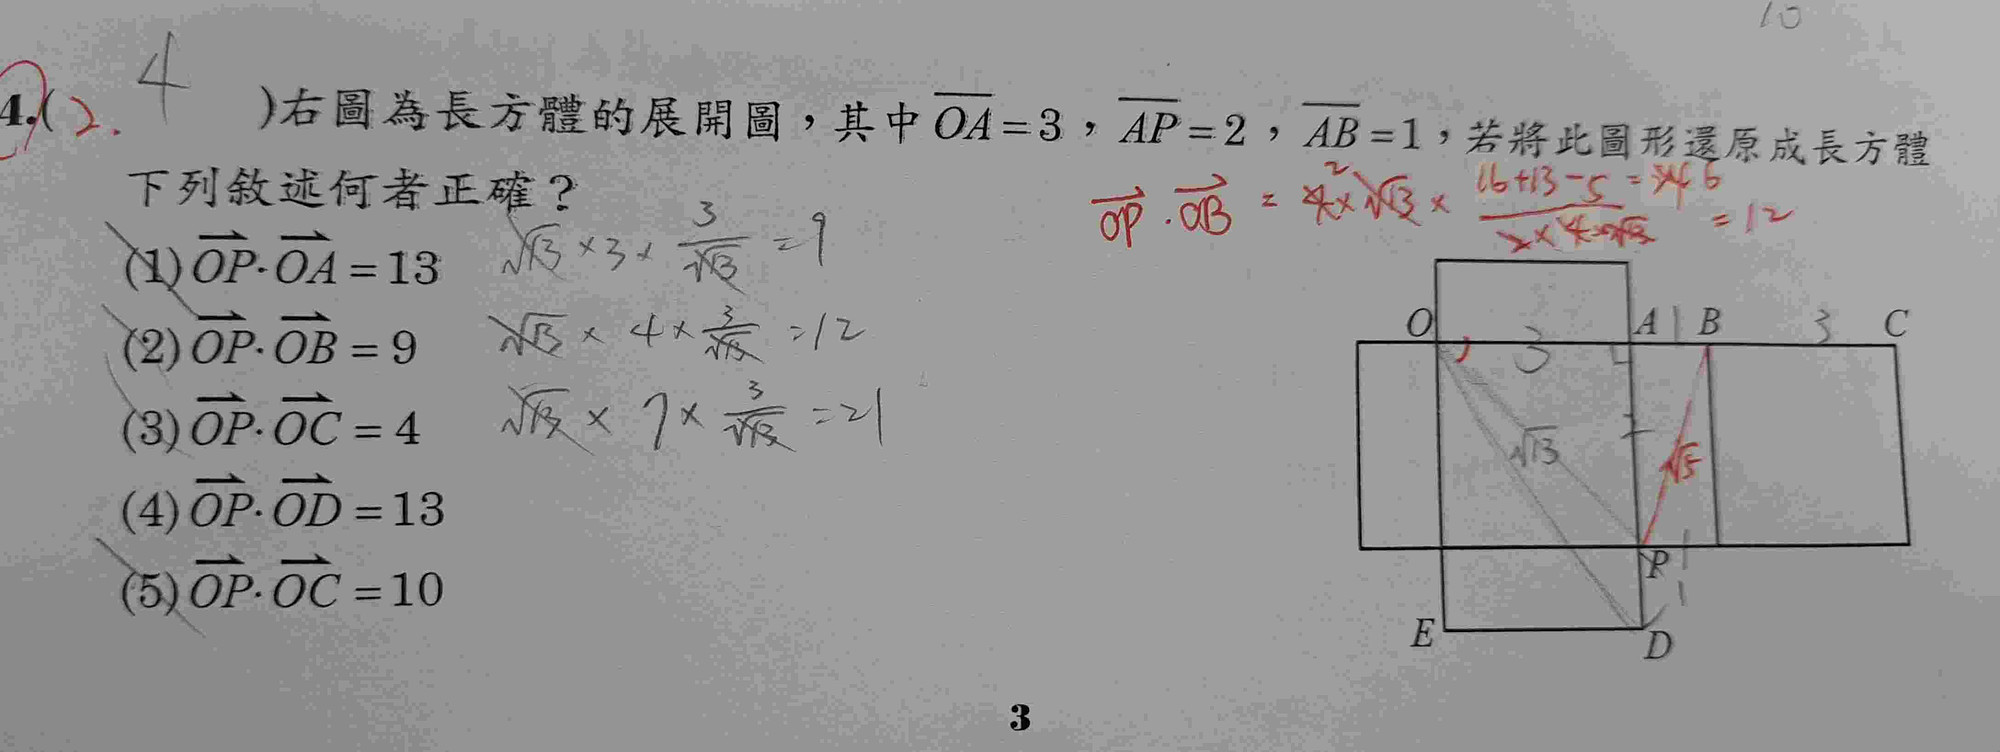 10
4.(2. 4 )右圖為長方體的展開圖，其中 OA=3，AP=2，AB=1，若將此圖形還原成長方體
下列敘述何者正確？
OP·OB = 4×√13× (16+13-5)/(2×4×√13) = 12
(1) OP·OA = 13 √13×3×3/√13=9
(2) OP·OB = 9 √13×4×3/√13=12
(3) OP·OC = 4 √13×7×3/√13=21
(4) OP·OD = 13
(5) OP·OC = 10
O 3 A 1 B 3 C
√13 √5
P 1
1
E D
3